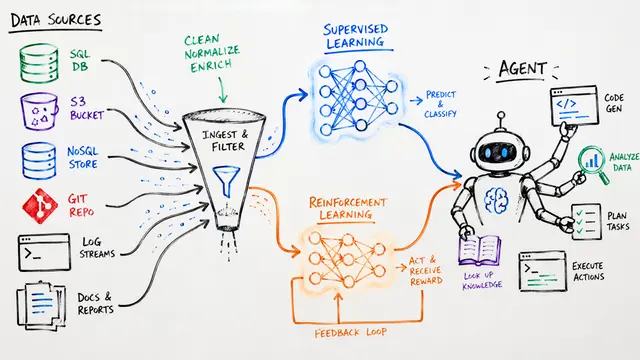 DATA SOURCES
SQL
DB
S3
BUCKET
NoSQL
STORE
GIT
REPO
LOG
STREAMS
DOCS &
REPORTS
CLEAN
NORMALIZE
ENRICH
INGEST &
FILTER
SUPERVISED
LEARNING
PREDICT
& CLASSIFY
REINFORCEMENT
LEARNING
ACT &
RECEIVE
REWARD
FEEDBACK LOOP
AGENT
</>
CODE
GEN
ANALYZE
DATA
PLAN
TASKS
LOOK UP
KNOWLEDGE
EXECUTE
ACTIONS